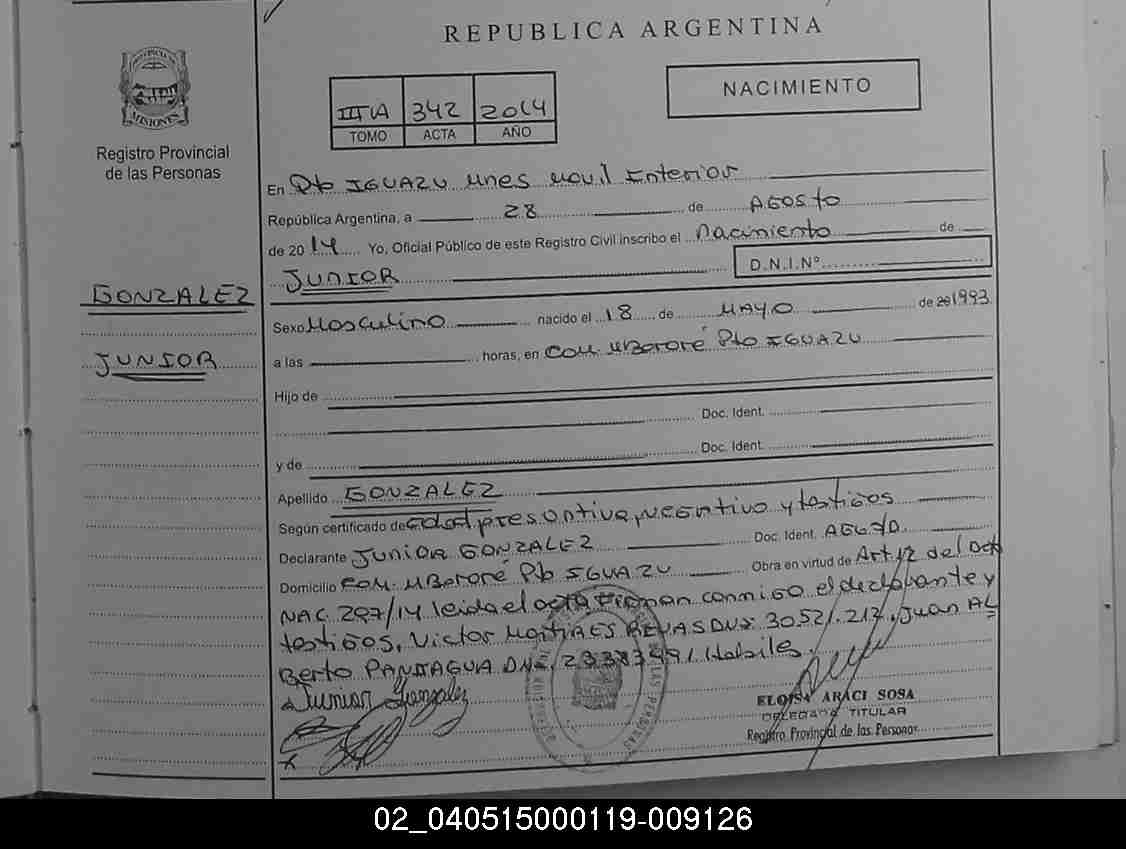 REPUBLICA ARGENTINA
PROVINCIA DE
MISIONES
Registro Provincial
de las Personas
IIIA 342 2014
TOMO ACTA AÑO
NACIMIENTO
En Pto IGUAZU Unes Movil Interior
República Argentina, a 28 de AGOSTO
de 2014 Yo, Oficial Público de este Registro Civil inscribo el Nacimiento de
JUNIOR D.N.I.Nº
GONZALEZ
JUNIOR
Sexo Masculino nacido el 18 de MAYO de 20 1993
a las horas, en Com. MBororé Pto IGUAZU
Hijo de
Doc. Ident.
y de Doc. Ident.
Apellido GONZALEZ
Según certificado de edad presuntiva, negativo y testigos
Declarante JUNIOR GONZALEZ Doc. Ident.
Domicilio Com. MBororé Pto IGUAZU Obra en virtud de Art 12 del Dcto
NAC 297/14 leida el acta firman conmigo el declarante y
testigos, Victor DNI: Juan AL
Berto PANIAGUA DNI. Habiles.
Junior Gonzalez
ELOISA ARACI SOSA
DELEGADA TITULAR
Registro Provincial de las Personas
02_040515000119-009126